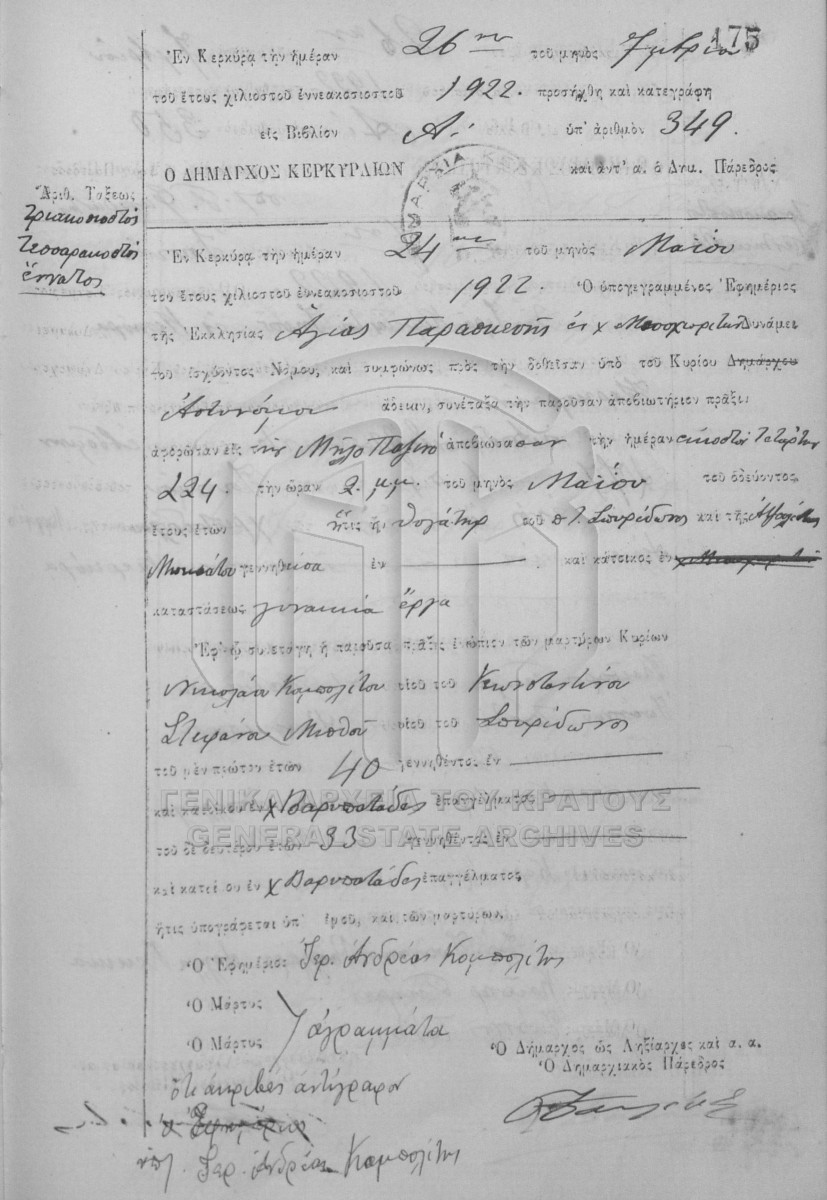 175
Ἐν Κερκύρᾳ τὴν ἡμέραν 26ην τοῦ μηνὸς 7μβρίου
τοῦ ἔτους χιλιοστοῦ ἐννεακοσιοστοῦ 1922. προσήχθη καὶ κατεγράφη
εἰς Βιβλίον Α. ὑπ' ἀριθμὸν 349.
Ο ΔΗΜΑΡΧΟΣ ΚΕΡΚΥΡΑΙΩΝ καὶ ἀντ' α. ὁ Δημ. Πάρεδρος
Ἀριθ. Τάξεως
Τριακοσιοστὸς
τεσσαρακοστὸς
ἔννατος
Ἐν Κερκύρᾳ τὴν ἡμέραν 24ην τοῦ μηνὸς Μαΐου
τοῦ ἔτους χιλιοστοῦ ἐννεακοσιοστοῦ 1922. Ὁ ὑπογεγραμμένος Ἐφημέριος
τῆς Ἐκκλησίας Ἁγίας Παρασκευῆς ἐν χ Δυνάμει
τοῦ ἰσχύοντος Νόμου, καὶ συμφώνως πρὸς τὴν δοθεῖσαν ὑπὸ τοῦ Κυρίου Δημάρχου
Ἀστυνόμου ἄδειαν, συνέταξα τὴν παροῦσαν ἀποβιωτήριον πρᾶξιν
ἀφορῶσαν εἰς τὴν ἀποβιώσασαν τὴν ἡμέραν εἰκοστὴ τετάρτην
224. τὴν ὥραν 2. μ.μ. τοῦ μηνὸς Μαΐου τοῦ ὁδεύοντος
ἔτους ἐτῶν ἥτις ἦ θυγάτηρ τοῦ π Σπυρίδωνος καὶ τῆς
γεννηθεῖσα ἐν καὶ κάτοικος ἐν
καταστάσεως γυναικεῖα ἔργα
Ἐφ' ᾧ συνετάγη ἡ παροῦσα πρᾶξις ἐνώπιον τῶν μαρτύρων Κυρίων
Νικολάου Κομπολίτου υἱοῦ τοῦ Κωνσταντίνου
Στεφάνου υἱοῦ τοῦ Σπυρίδωνος
τοῦ μὲν πρώτου ἐτῶν 40 γεννηθέντος ἐν
καὶ κατοίκου ἐν χ Βαρυπατάδες ἐπαγγέλματος
ΓΕΝΙΚΑ ΑΡΧΕΙΑ ΤΟΥ ΚΡΑΤΟΥΣ
GENERAL STATE ARCHIVES
τοῦ δὲ δευτέρου ἐτῶν 33 γεννηθέντος ἐν
καὶ κατοίκου ἐν χ Βαρυπατάδες ἐπαγγέλματος
ἥτις ὑπογράφεται ὑπ' ἐμοῦ, καὶ τῶν μαρτύρων.
Ὁ Ἐφημέριος Ἱερ. Ἀνδρέας Κομπολίτης
Ὁ Μάρτυς
Ὁ Μάρτυς ἀγράμματοι
Ὁ Δήμαρχος ὡς Ληξίαρχος καὶ α. α.
Ὁ Δημαρχιακὸς Πάρεδρος
ὅτι ἀκριβὲς ἀντίγραφον
ὁ Ἐφημέριος
ὑπ. Ἱερ. Ἀνδρέας Κομπολίτης